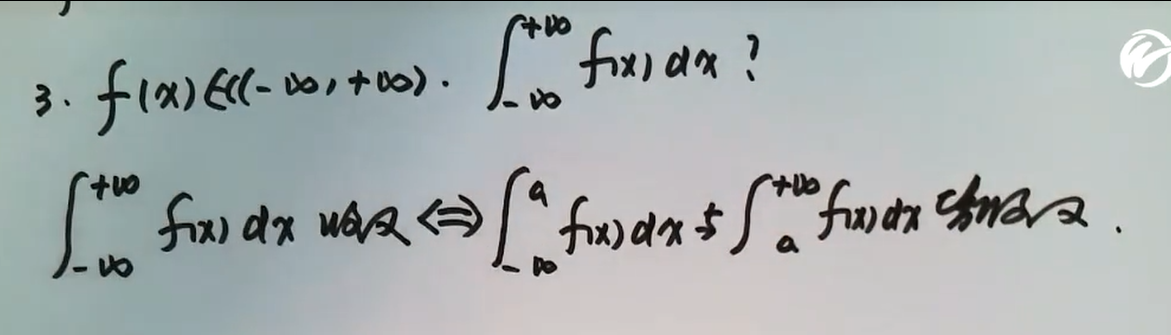 3. f(x)∈C(-∞,+∞). ∫_{-∞}^{+∞} f(x)dx ?
∫_{-∞}^{+∞} f(x)dx 收敛 ⇔ ∫_{-∞}^{a} f(x)dx 与 ∫_{a}^{+∞} f(x)dx 都收敛.